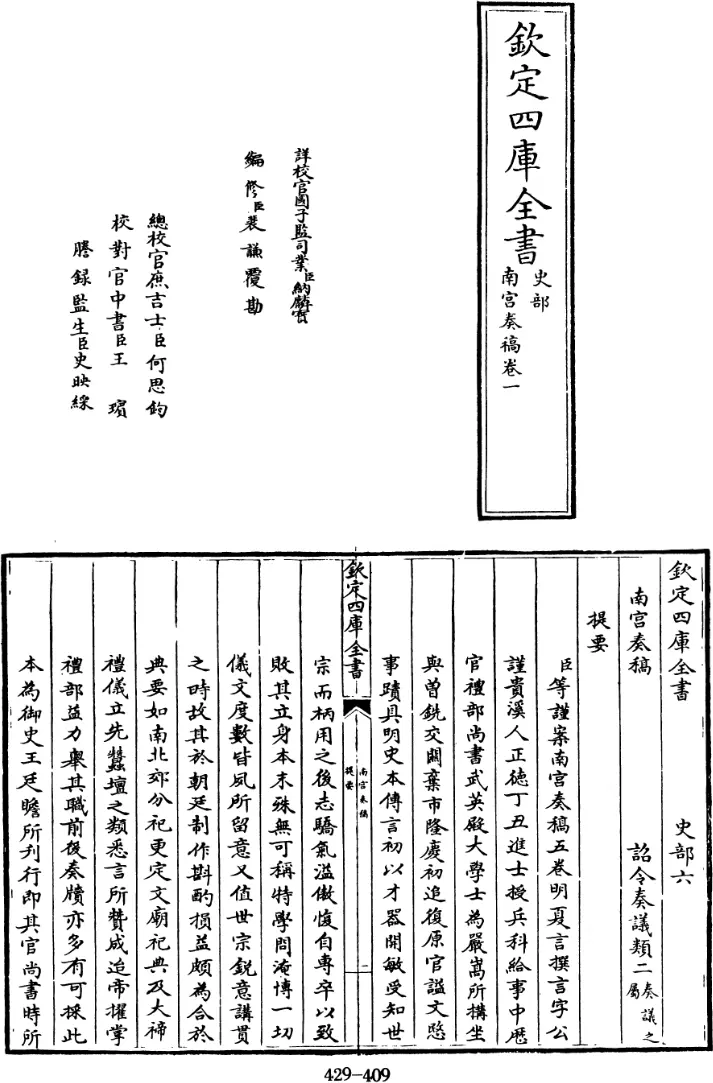 欽定四庫全書
史部
南宫奏稿卷一
詳校官國子監司業臣納麟寶
編修臣裴謙覆勘
總校官庶吉士臣何思鈞
校對官中書臣王瑸
謄録監生臣史映緑
欽定四庫全書
史部六
南宫奏稿
詔令奏議類二奏議之屬
提要
臣等謹案南宫奏稿五卷明夏言撰言字公
謹貴溪人正德丁丑進士授兵科給事中歴
官禮部尚書武英殿大學士為嚴嵩所搆坐
與曽銑交闗棄市隆慶初追復原官諡文愍
事蹟具明史本傳言初以才器開敏受知世
欽定四庫全書
南宫奏稿
提要
一
宗而柄用之後志驕氣溢傲愎自專卒以致
敗其立身本末殊無可稱特學問淹博一切
儀文度數皆夙所留意又值世宗鋭意講貫
之時故其於朝廷制作斟酌損益頗為合於
典要如南北郊分祀更定文廟祀典及大禘
禮儀立先蠶壇之類悉言所賛成迨帝擢掌
禮部益力舉其職前後奏牘亦多有可採此
本為御史王廷瞻所刋行即其官尚書時所
429-409